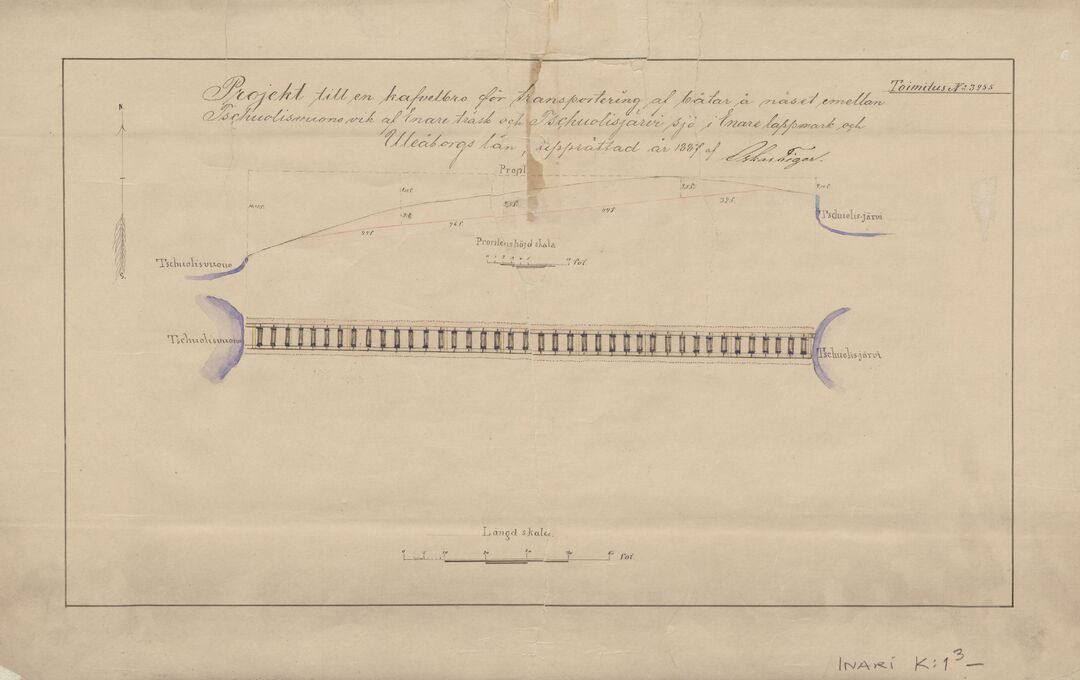 Toimitus No 3955
Projekt till en kafvelbro för transportering af båtar å näset emellan
Tschuolisvuono vik af Enare träsk och Tschuolisjärvi sjö i Enare lappmark och
Uleåborgs län, upprättad år 1887 af
N.
S.
Profil
Tschuolis-järvi
Tschuolisvuono
Profilens höjd skala
Fot.
Tschuolisvuono
Tschuolisjärvi
Längd skala.
Fot.
INARI K:1³ —